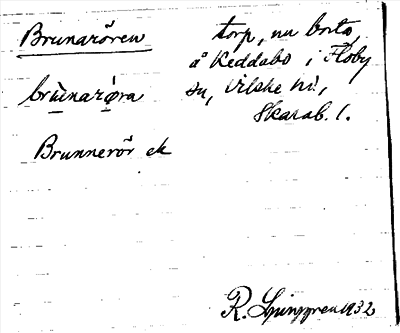 Brunarören
torp, nu borta,
å Keddabo i Floby
sn, Vilske hd,
Skarab. l.
brùnarǿra
Brunnerör ek
R. Ljunggren 1932